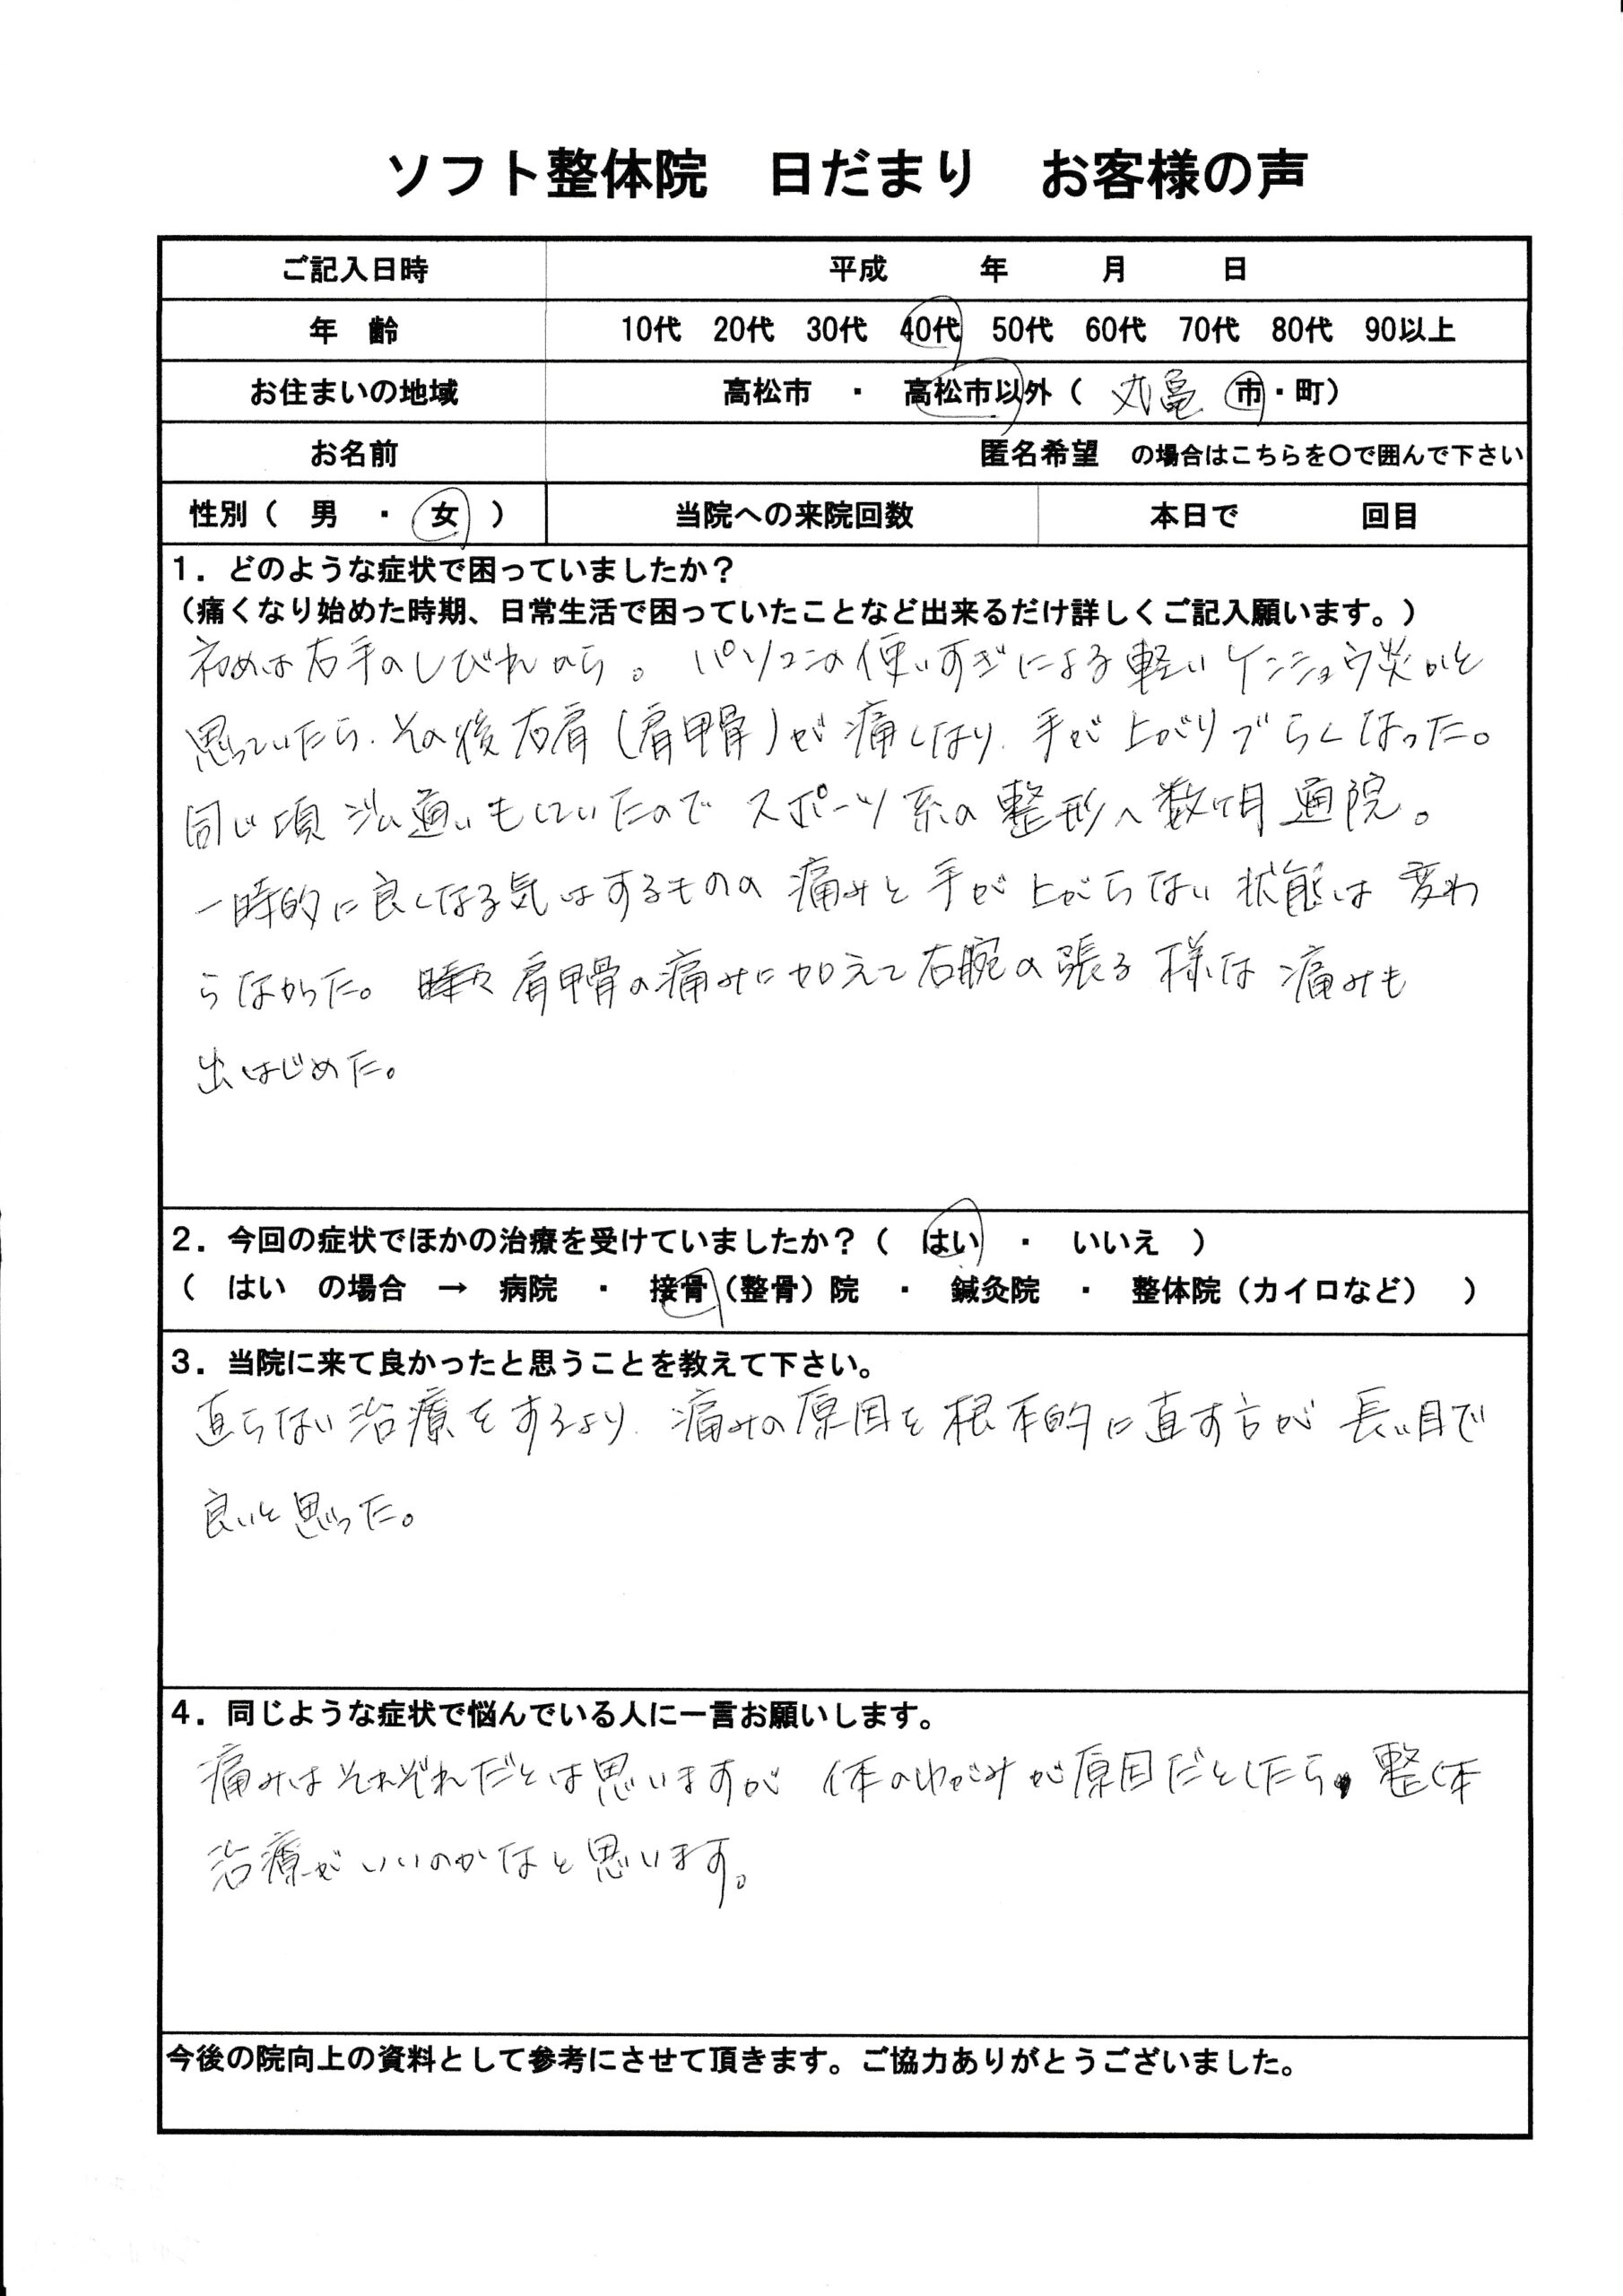 ソフト整体院 日だまり お客様の声
ご記入日時 平成 年 月 日
年 齢 10代 20代 30代 40代 50代 60代 70代 80代 90以上
お住まいの地域 高松市 ・ 高松市以外（ 丸亀 市・町）
お名前 匿名希望 の場合はこちらを〇で囲んで下さい
性別（ 男 ・ 女 ） 当院への来院回数 本日で 回目
１．どのような症状で困っていましたか？
（痛くなり始めた時期、日常生活で困っていたことなど出来るだけ詳しくご記入願います。）
初めは右手のしびれから。パソコンの使いすぎによる軽いケンショウ炎かと
思っていたら、その後右肩（肩甲骨）が痛くなり、手が上がりづらくなった。
同じ頃ジム通いもしていたのでスポーツ系の整形へ数ヶ月通院。
一時的に良くなる気はするものの痛みと手が上がらない状態は変わ
らなかった。時々肩甲骨の痛みに加えて右腕の張る様な痛みも
出はじめた。
２．今回の症状でほかの治療を受けていましたか？（ はい ・ いいえ ）
（ はい の場合 → 病院 ・ 接骨（整骨）院 ・ 鍼灸院 ・ 整体院（カイロなど） ）
３．当院に来て良かったと思うことを教えて下さい。
直らない治療をするより、痛みの原因を根本的に直す方が長い目で
良いと思った。
４．同じような症状で悩んでいる人に一言お願いします。
痛みはそれぞれだとは思いますが体のゆがみが原因だとしたら、整体
治療がいいのかなと思います。
今後の院向上の資料として参考にさせて頂きます。ご協力ありがとうございました。